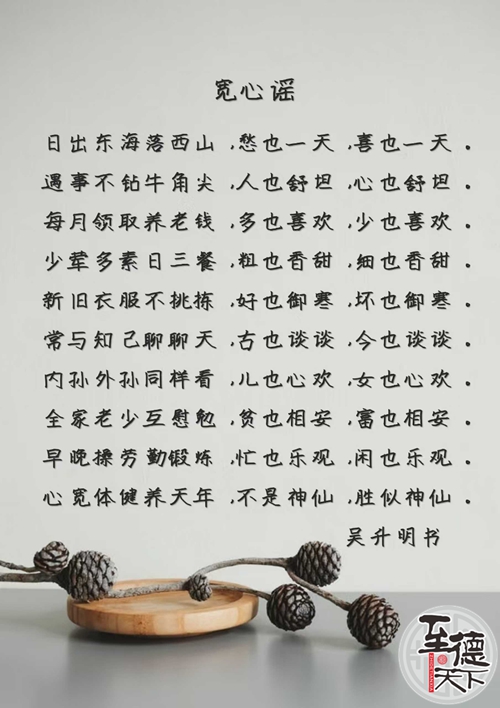 宽心谣
日出东海落西山,愁也一天,喜也一天.
遇事不钻牛角尖,人也舒坦,心也舒坦.
每月领取养老钱,多也喜欢,少也喜欢.
少荤多素日三餐,粗也香甜,细也香甜.
新旧衣服不挑拣,好也御寒,坏也御寒.
常与知己聊聊天,古也谈谈,今也谈谈.
内孙外孙同样看,儿也心欢,女也心欢.
全家老少互慰勉,贫也相安,富也相安.
早晚操劳勤锻炼,忙也乐观,闲也乐观.
心宽体健养天年,不是神仙,胜似神仙.
吴升明书
至德天下